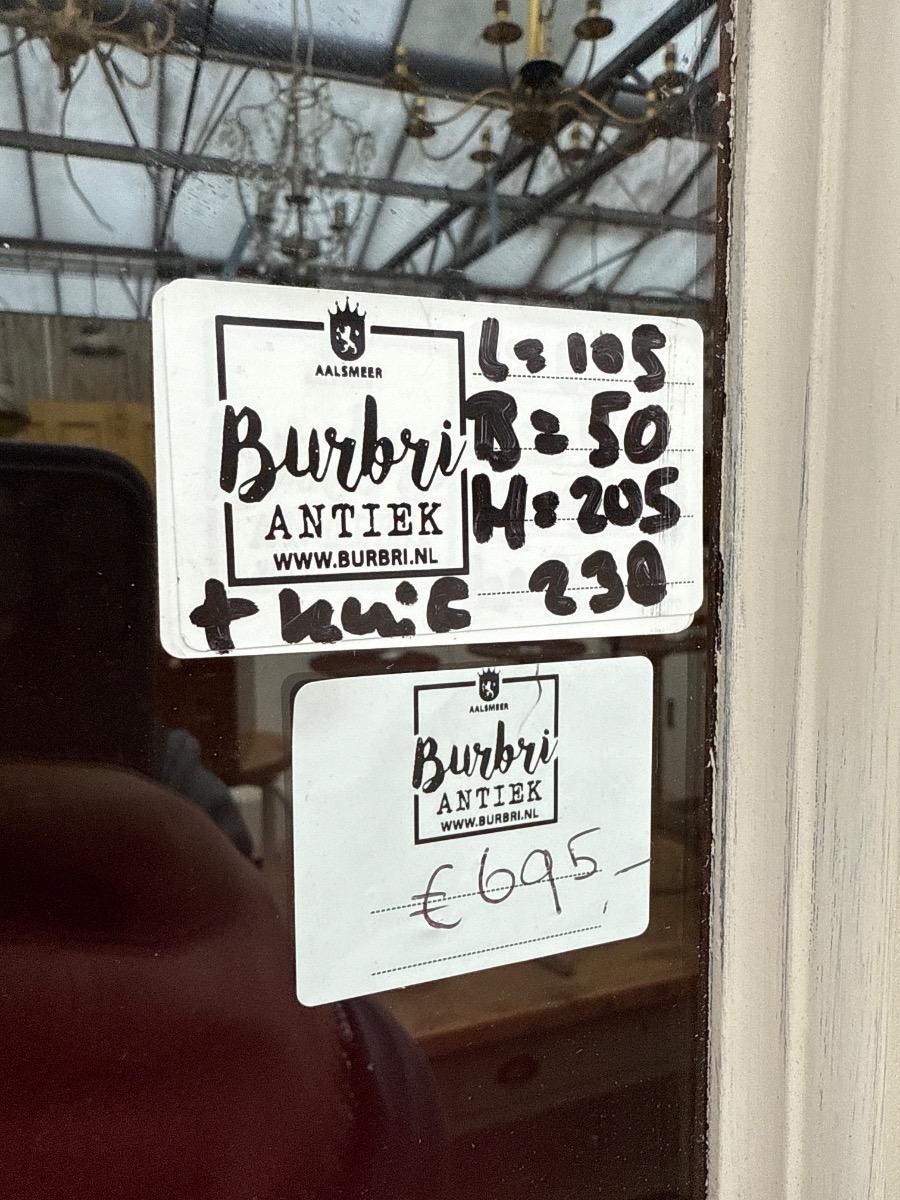 AALSMEER
Burbri
ANTIEK
WWW.BURBRI.NL
L=105
B=50
H=205
+ kuif 230
AALSMEER
Burbri
ANTIEK
WWW.BURBRI.NL
€695,-